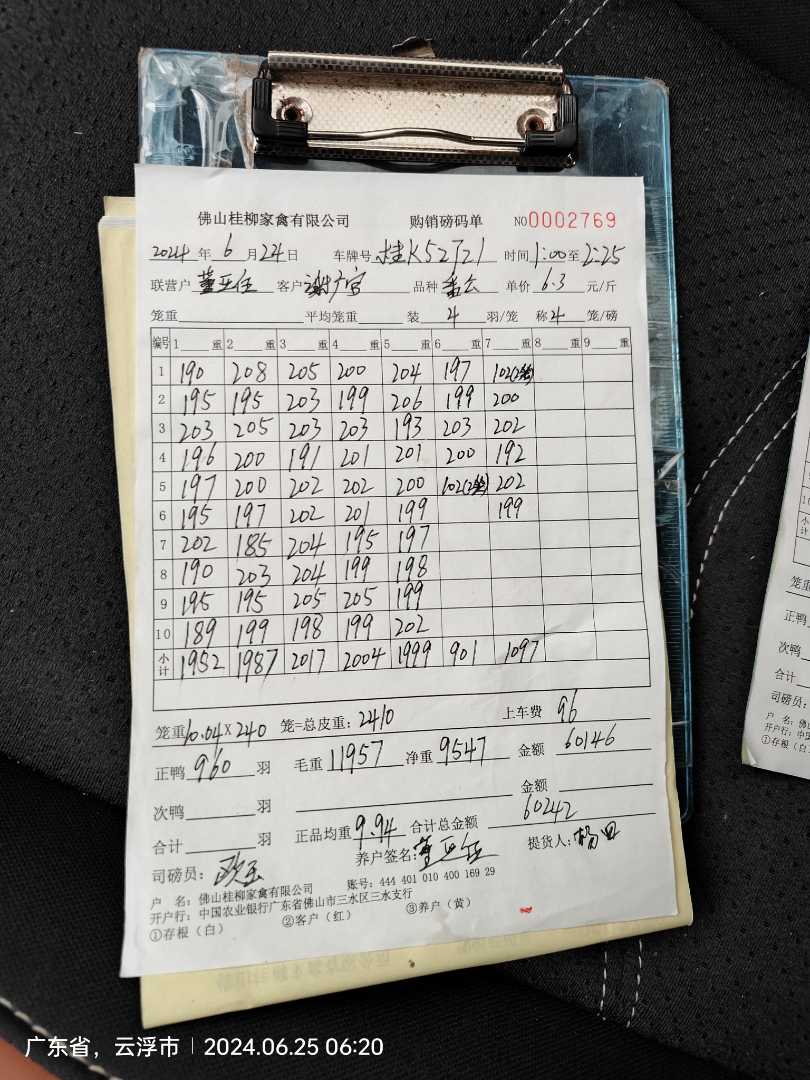 佛山桂柳家禽有限公司 购销磅码单 NO0002769
2024年6月24日 车牌号 桂K52721 时间 1:00至2:25
联营户 客户 品种 单价 6.3 元/斤
笼重 平均笼重 装 4 羽/笼 称 4 笼/磅
编号 1 重 2 重 3 重 4 重 5 重 6 重 7 重 8 重 9 重
1 190 208 205 200 204 197 102(2笼)
2 195 195 203 199 206 199 200
3 203 205 203 203 193 203 202
4 196 200 191 201 201 200 192
5 197 200 202 202 200 102(2笼) 202
6 195 197 202 201 199 199
7 202 185 204 195 197
8 190 203 204 199 198
9 195 195 205 205 199
10 189 199 198 199 202
小计 1952 1987 2017 2004 1999 901 1097
笼重10.04×240 笼=总皮重:2410 上车费 96
正鸭 960 羽 毛重 11957 净重 9547 金额 60146
次鸭 羽 金额
合计 羽 正品均重 9.94 合计总金额 60242
司磅员: 养户签名: 提货人:
户 名:佛山桂柳家禽有限公司 账号:444 401 010 400 169 29
开户行:中国农业银行广东省佛山市三水区三水支行
①存根(白) ②客户(红) ③养户(黄)
10
小计
笼重
正鸭
次鸭
合计
司磅员:
户 名:佛山
开户行:中国
①存根(白
广东省，云浮市 | 2024.06.25 06:20